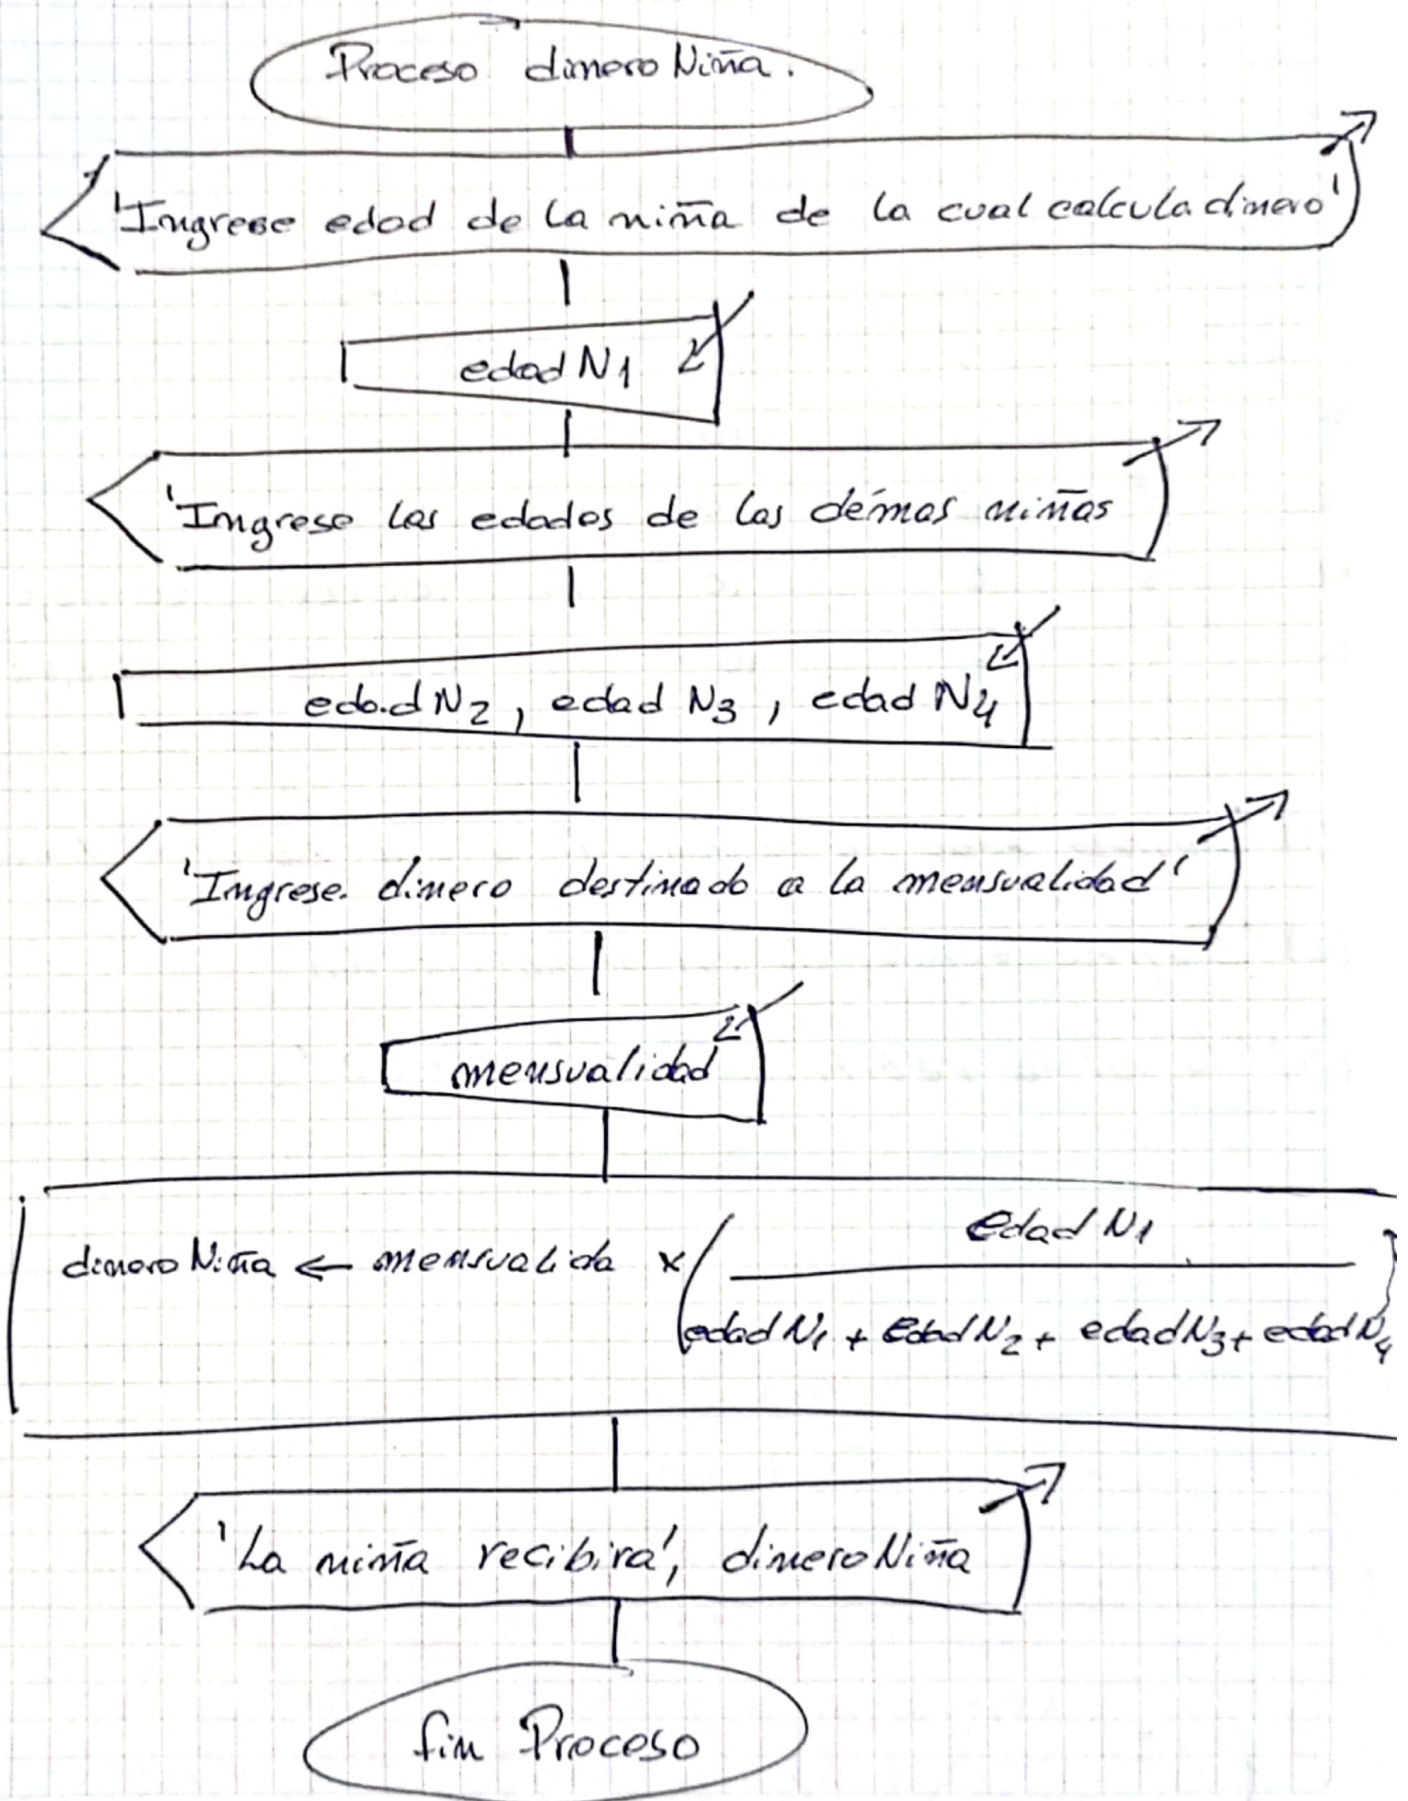 Proceso dineroNiña.
'Ingrese edad de la niña de la cual calcula dinero'
edad N1
'Ingrese las edades de las démas niñas
edad N2, edad N3, edad N4
'Ingrese dinero destinado a la mensualidad'
mensualidad
edad N1
dineroNiña ← mensualida x (
edad N1 + edad N2 + edad N3 + edad N4)
'La niña recibira', dineroNiña
fin Proceso